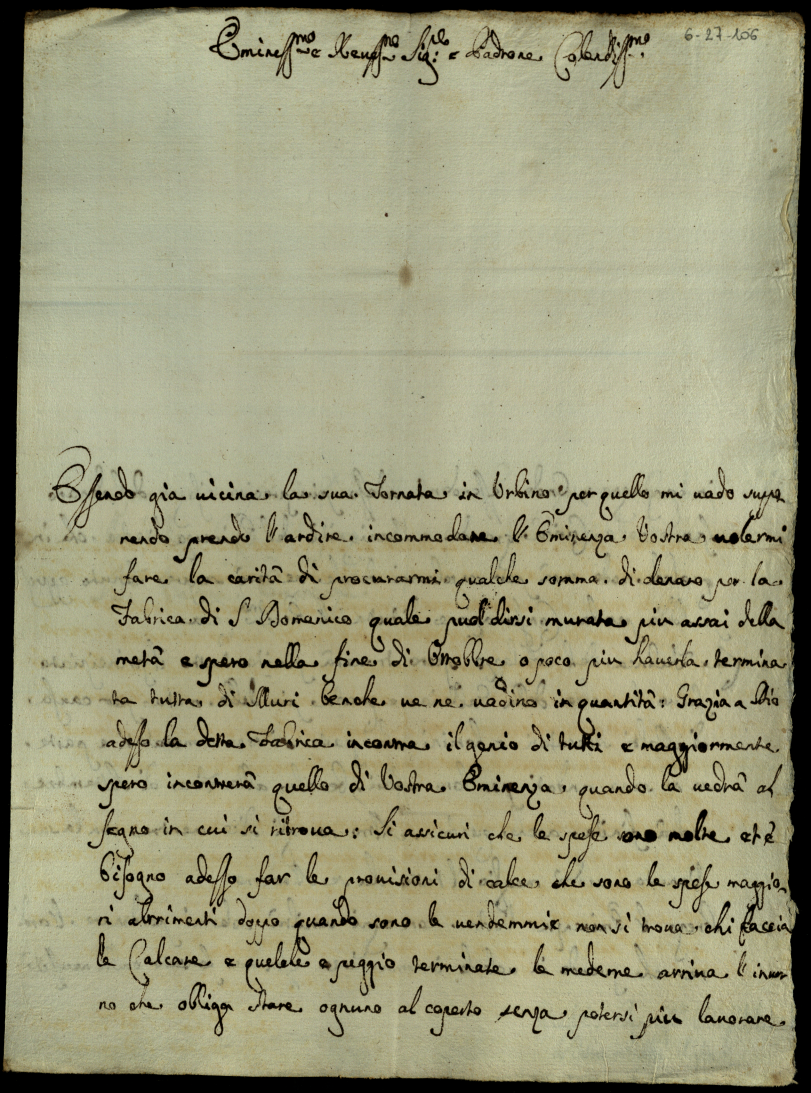 6-27-106
Eminess.mo e Reu.mo Sig.re e Padrone Colendiss.mo
Essendo gia uicina la sua Tornata in Urbino per quello mi uado suppo
nendo prendo l'ardire incommodare l'Eminenza Vostra uolermi
fare la carità di procurarmi qualche somma di denaro per la
Fabrica di S Domenico quale puol dirsi murata piu assai della
metà e spero nella fine di Ottobre o poco piu hauerla termina
ta tutta di Muri benche ue ne uadino in quantità: Grazia a Dio
adesso la detta Fabrica incontra il genio di tutti e maggiormente
spero incontrerà quello di Vostra Eminenza quando la uedrà al
segno in cui si ritroua: Si assicuri che le spese sono molte et è
bisogno adesso far le prouisioni di calce che sono le spese maggio
ri altrimenti doppo quando sono le uendemmie non si troua chi faccia
le Calcare e quel che è peggio terminate le medeme arriua l'inuer
no che obliga stare ognuno al coperto senza potersi piu lauorare